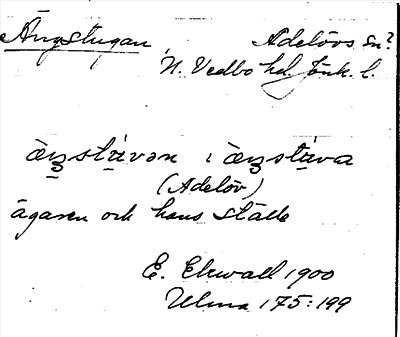 Ängstugan, Adelövs sn?
N. Vedbo hd. Jönk. l.
ägaren och hans ställe
(Adelöv)
E. Ekwall 1900
Ulma 175:199